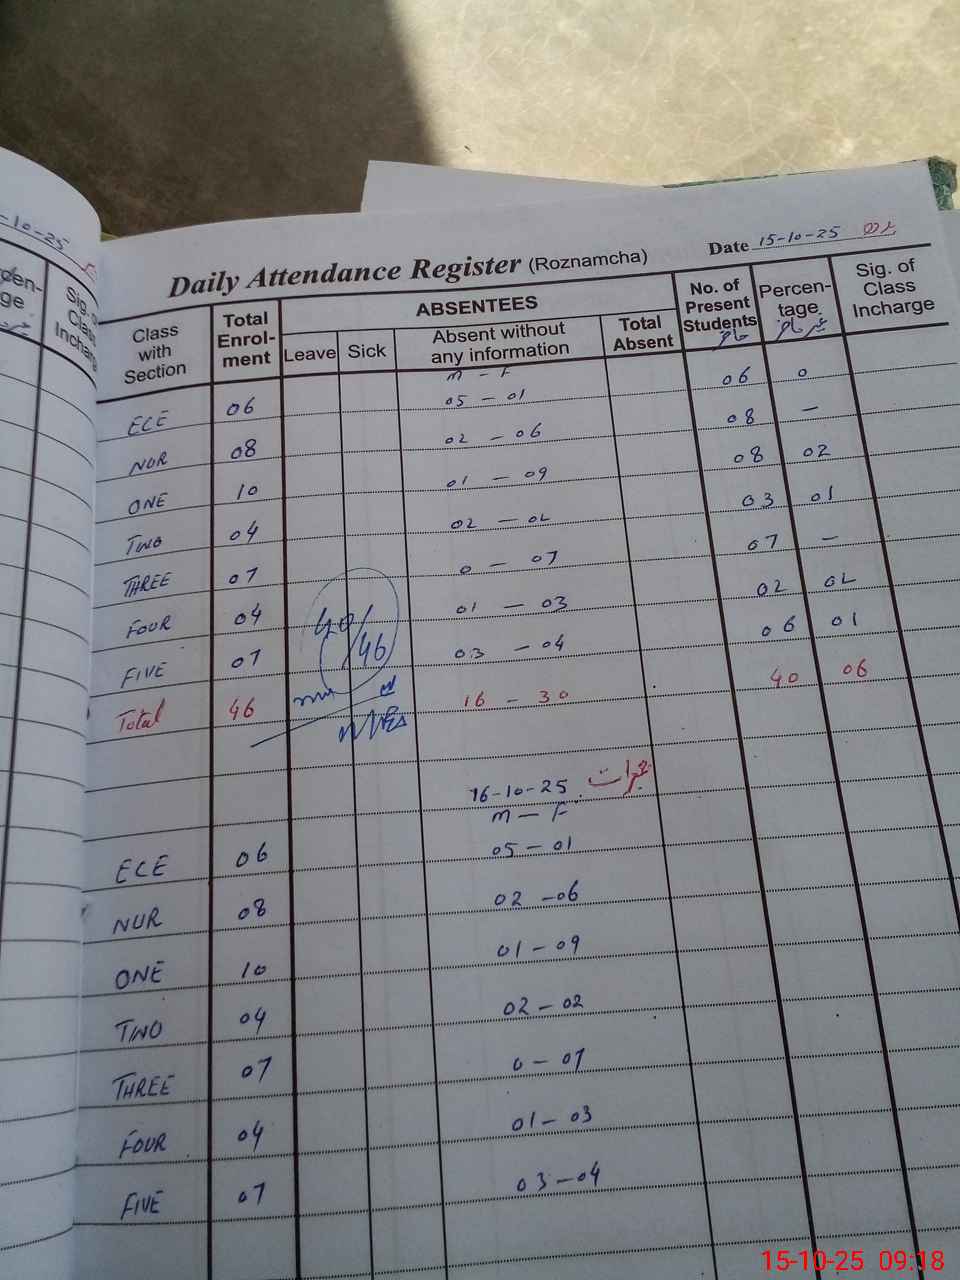 -10-25
Percen-
ge
Sig. o
Class
Incharge
Daily Attendance Register (Roznamcha)
Date 15-10-25 بدھ
Class with Section Total Enrol-ment ABSENTEES Leave Sick Absent without any information Total Absent No. of Present Students حاضر Percen-tage غیر حاضر Sig. of Class Incharge
M - F
ECE 06 05 - 01 06 0
NUR 08 02 - 06 08 -
ONE 10 01 - 09 08 02
TWO 04 02 - 02 03 01
THREE 07 0 - 07 07 -
FOUR 04 01 - 03 02 02
FIVE 07 03 - 04 06 01
40/46
Total 46 16 - 30 40 06
16-10-25 جمعرات
M - F
ECE 06 05 - 01
NUR 08 02 - 06
ONE 10 01 - 09
TWO 04 02 - 02
THREE 07 0 - 07
FOUR 04 01 - 03
FIVE 07 03 - 04
15-10-25 09:18